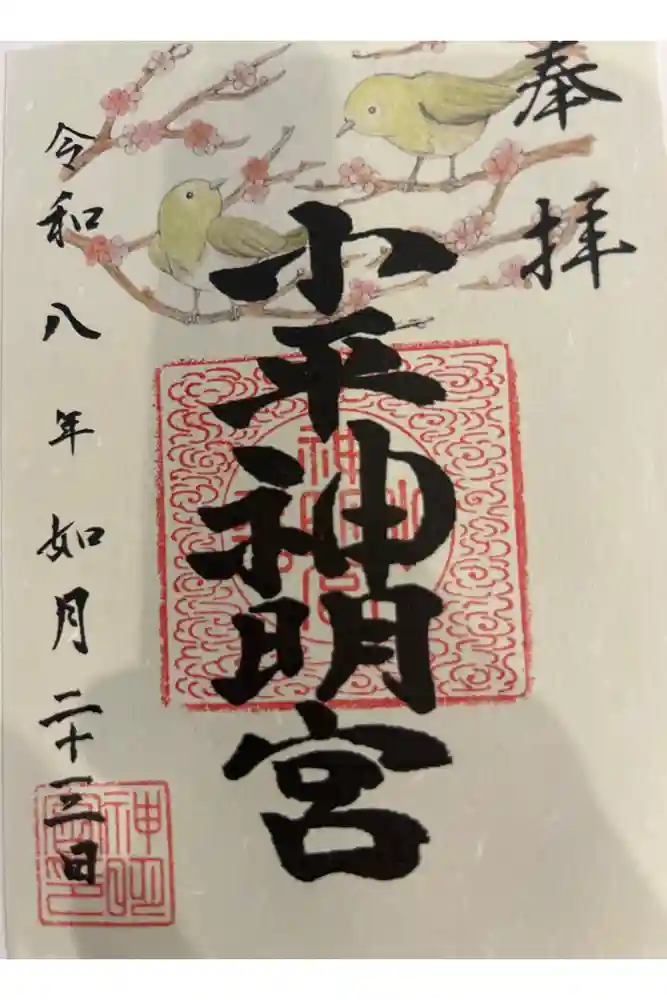 奉拝
小平神明宮
令和八年如月二十三日